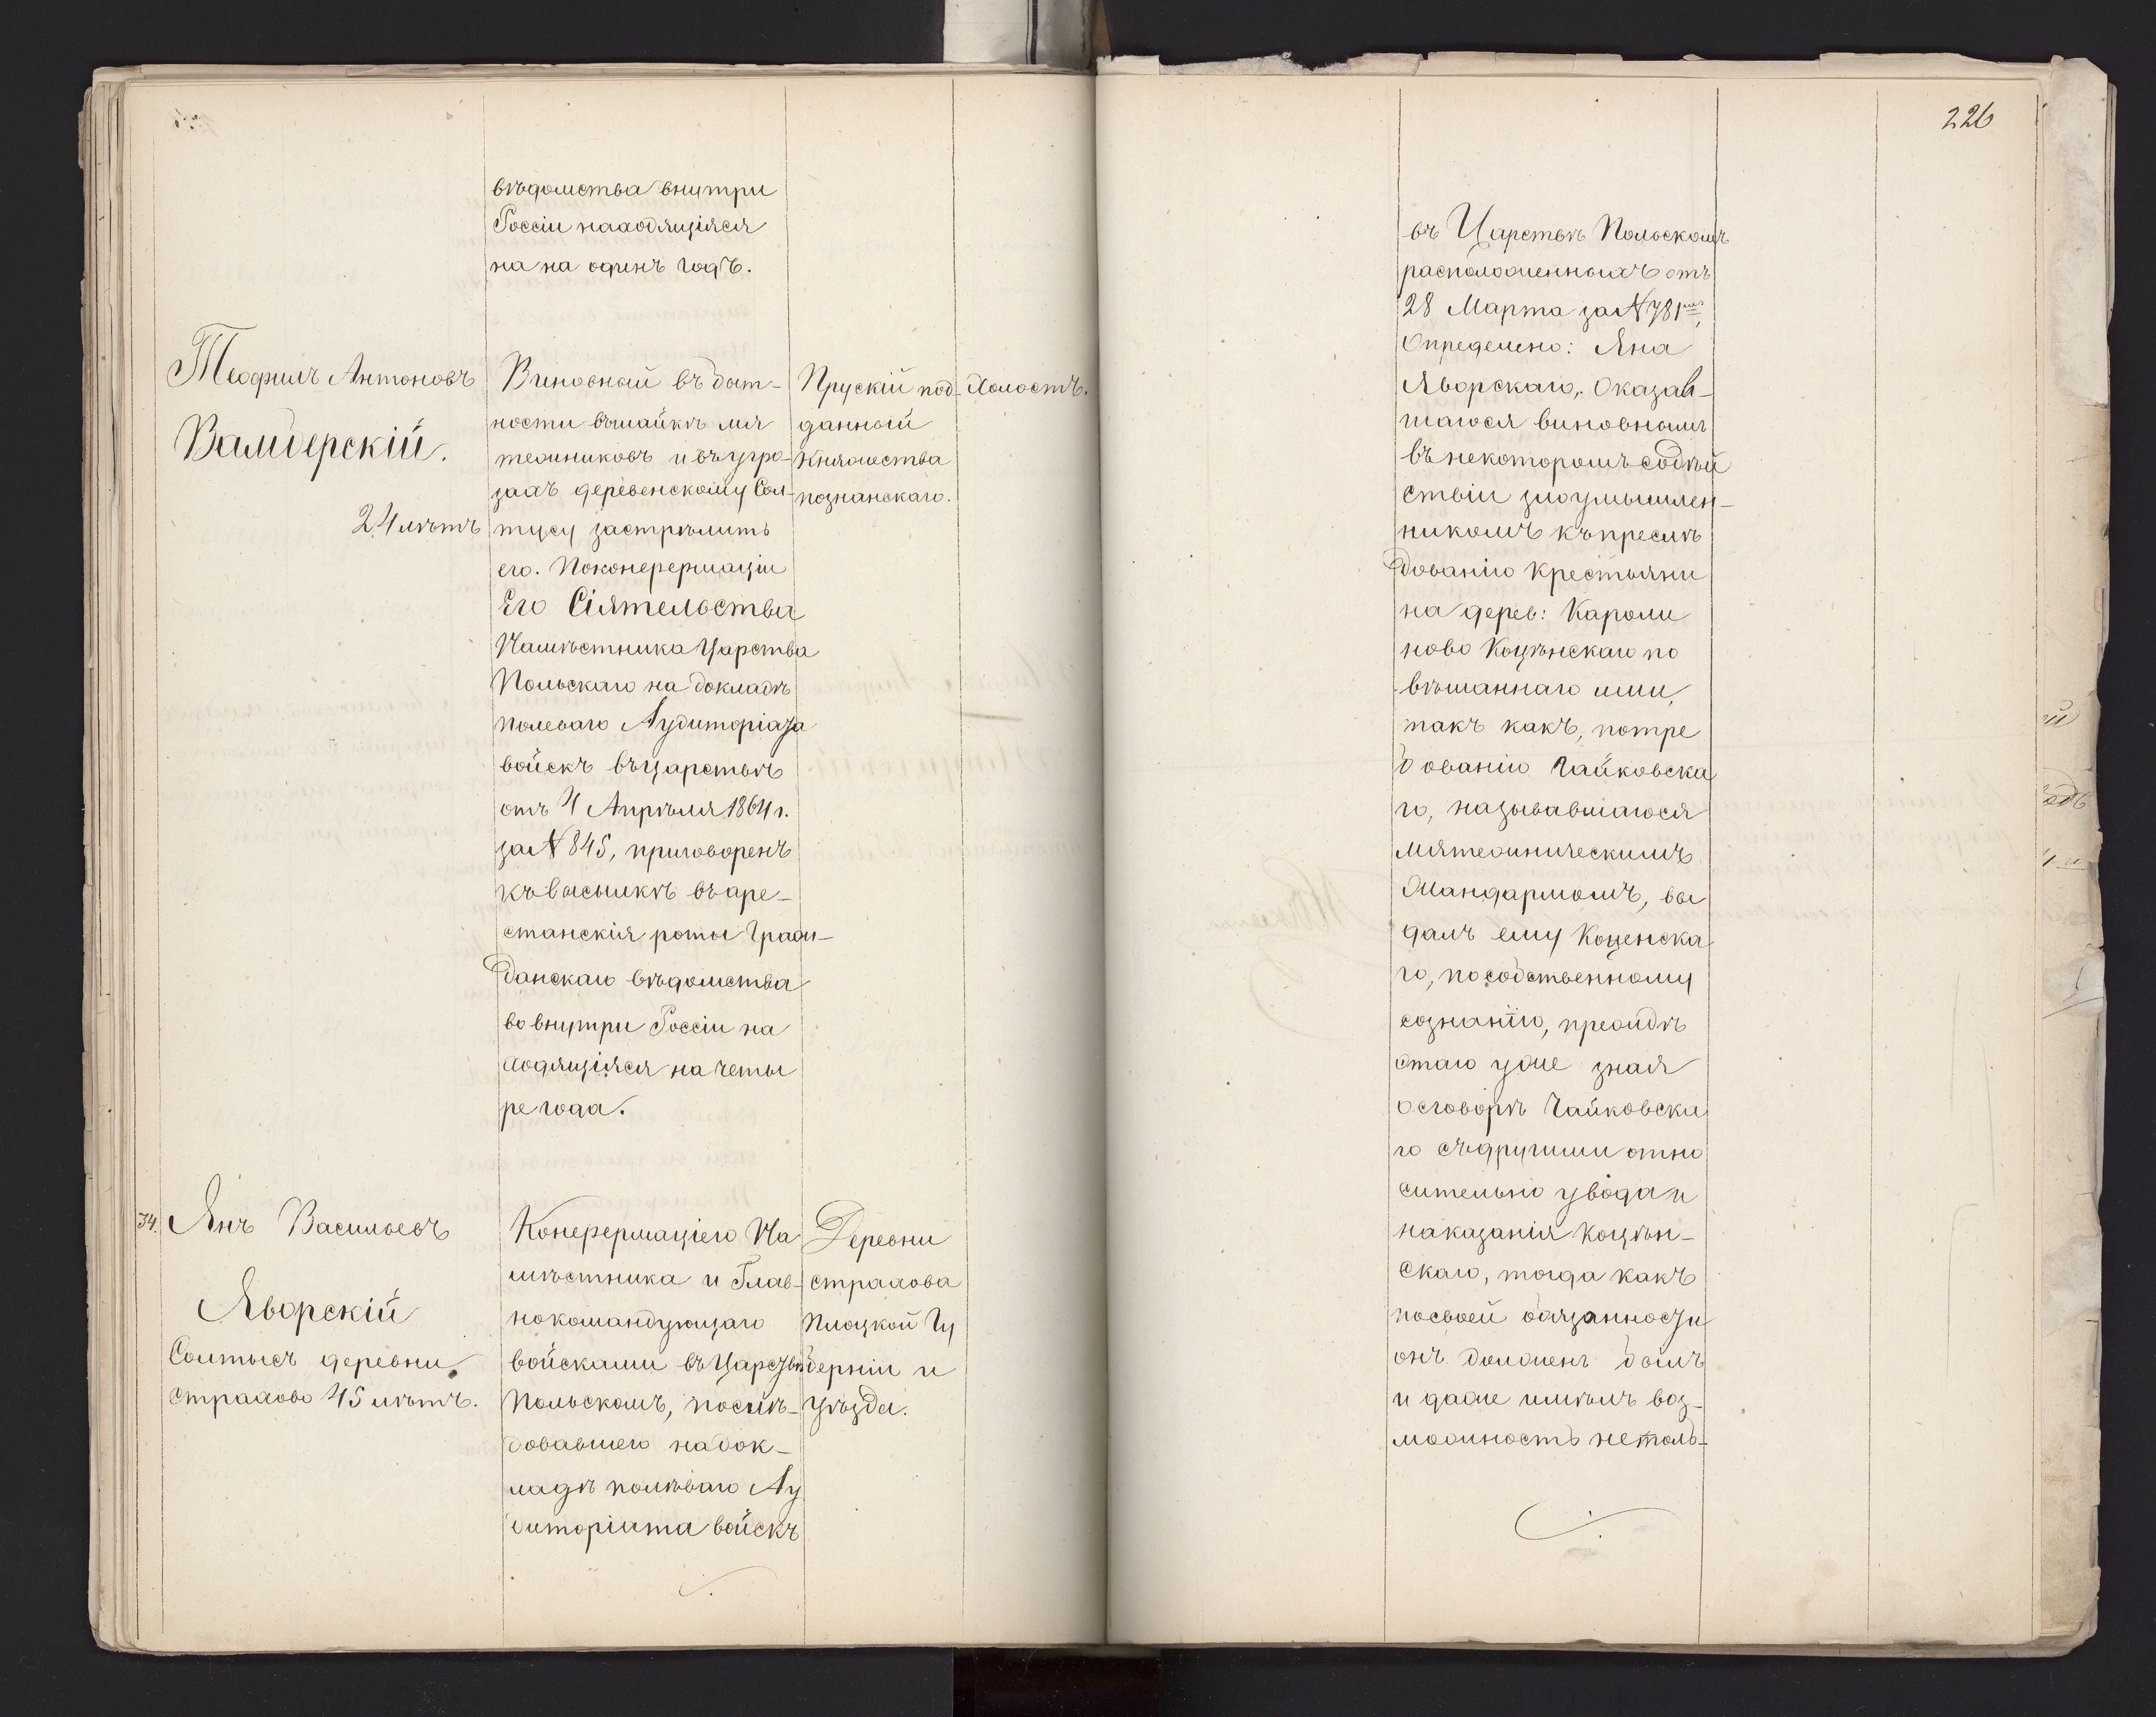 вѣдомства внутри
Россіи находящіяся
на на одинъ годъ.
Теофилъ Антоновъ
Валдерскій.
24 лѣтъ
Виновный въ быт-
ности въшайкѣ мя
тежниковъ и въугро-
захъ деревенскому Сол-
тусу застрѣлить
его. Поконфермаціи
Его Сіятельства
Намѣстника Царства
Польскаго на докладѣ
полеваго Аудиторіата
войскъ въцарствѣ
отъ 4 Апрѣля 1864 г.
за № 845, приговоренъ
къвысылкѣ въаре-
станскія роты Граж-
данскаго вѣдомства
во внутри Россіи на
ходящіяся на четы
ре года.
Прускій под-
данный
Княжества
познанскаго.
Холостъ.
34. Янъ Васильевъ
Яворскій
Солтысъ деревни
Страхово 45 лѣтъ.
Конфермаціею На
мѣстника и Глав-
нокомандующаго
войсками въ Царствѣ
Польскомъ, послѣ-
довавшею надок-
ладѣ полѣваго Ау
диторіата войскъ
Деревни
Страхова
Плоцкой Гу
берніи и
Уѣзды.
226
въ Царствѣ Польскомъ
расположенныхъ отъ
28 Марта за № 781мъ,
Определено: Яна
Яворскаго, Оказав-
шагося виновнымъ
въ некоторомъ содѣй
ствіи злоумышлен-
никомъ къпреслѣ
дованію Крестьяни
на дерев: Кароли
ново Коцѣнскаго по
вѣшаннаго ими,
такъ какъ, потре
бованію Чайковска
го, называвшагося
мятежническимъ
Жандармомъ, вы
далъ ему Коценска
го, пособственному
сознанію, преждѣ
стаго уже зная
осговорѣ Чайковска
го съдругими отно
сительно увода и
наказанія Коцѣн-
скаго, тогда какъ
посвоей обязанности
онъ долженъ былъ
и даже имѣлъ воз-
можность нетоль-